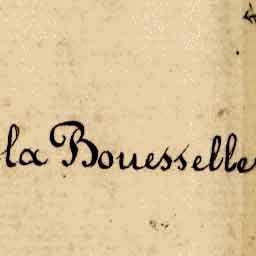 la Bouesselle